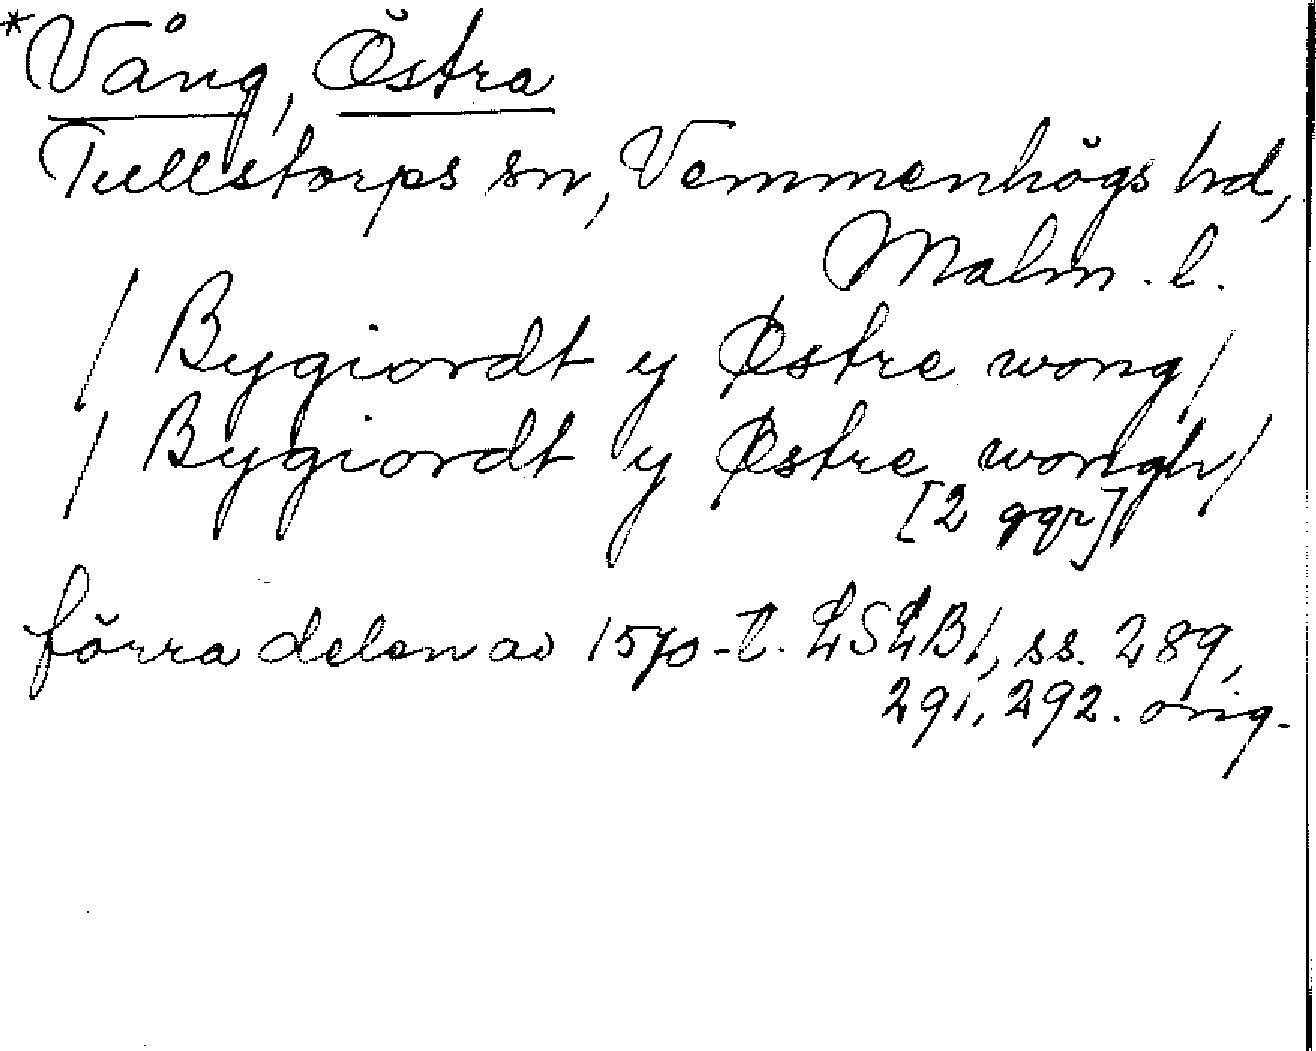 *Vång, Östra
Tullstorps sn, Vemmenhögs hd,
Malm. l.
/ Bygiordt y Østre wong /
/ Bygiordt y Østre wongh /
[2 ggr]
förra delen av 1570-t. LSLB1, ss. 289,
291, 292. orig.